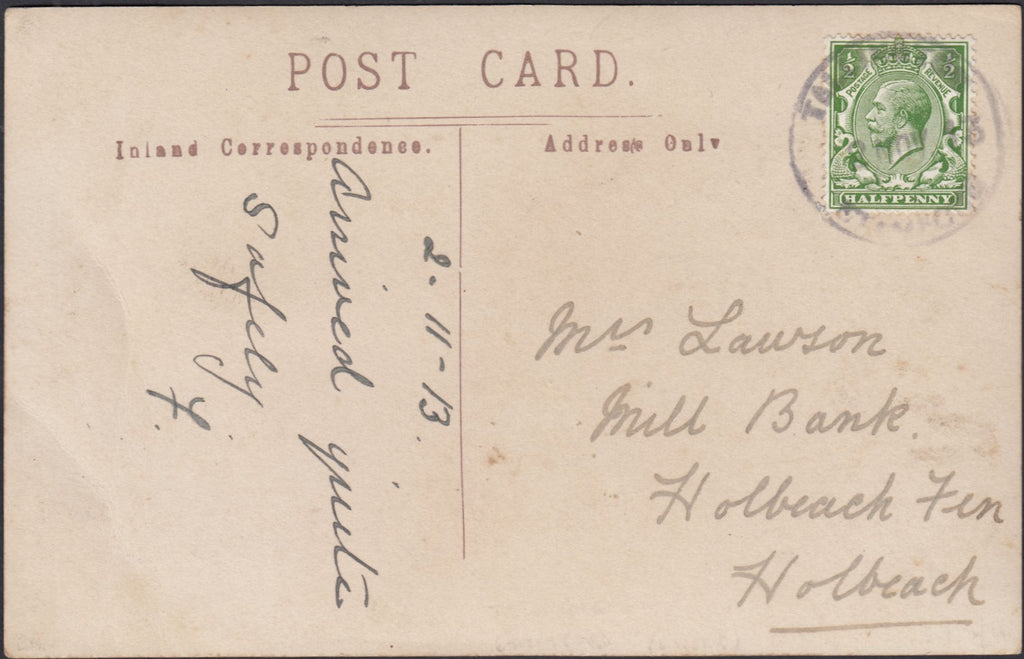 POST CARD.
Inland Correspondence.
Address Only
2-11-13.
Arrived quite
safely
Mrs Lawson
Mill Bank.
Holbeach Fen
Holbeach
½ ½
POSTAGE REVENUE
HALFPENNY